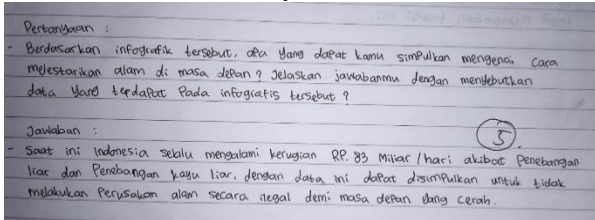 Pertanyaan :
- Berdasarkan infografik tersebut, apa yang dapat kamu simpulkan mengenai cara
melestarikan alam di masa depan ? Jelaskan jawabanmu dengan menyebutkan
data yang terdapat pada infografis tersebut ?
Jawaban :
5
- Saat ini Indonesia selalu mengalami kerugian RP. 83 Miliar / hari akibat Penebangan
liar dan Penebangan kayu liar, dengan data ini dapat disimpulkan untuk tidak
melakukan Perusakan alam secara ilegal demi masa depan yang cerah.